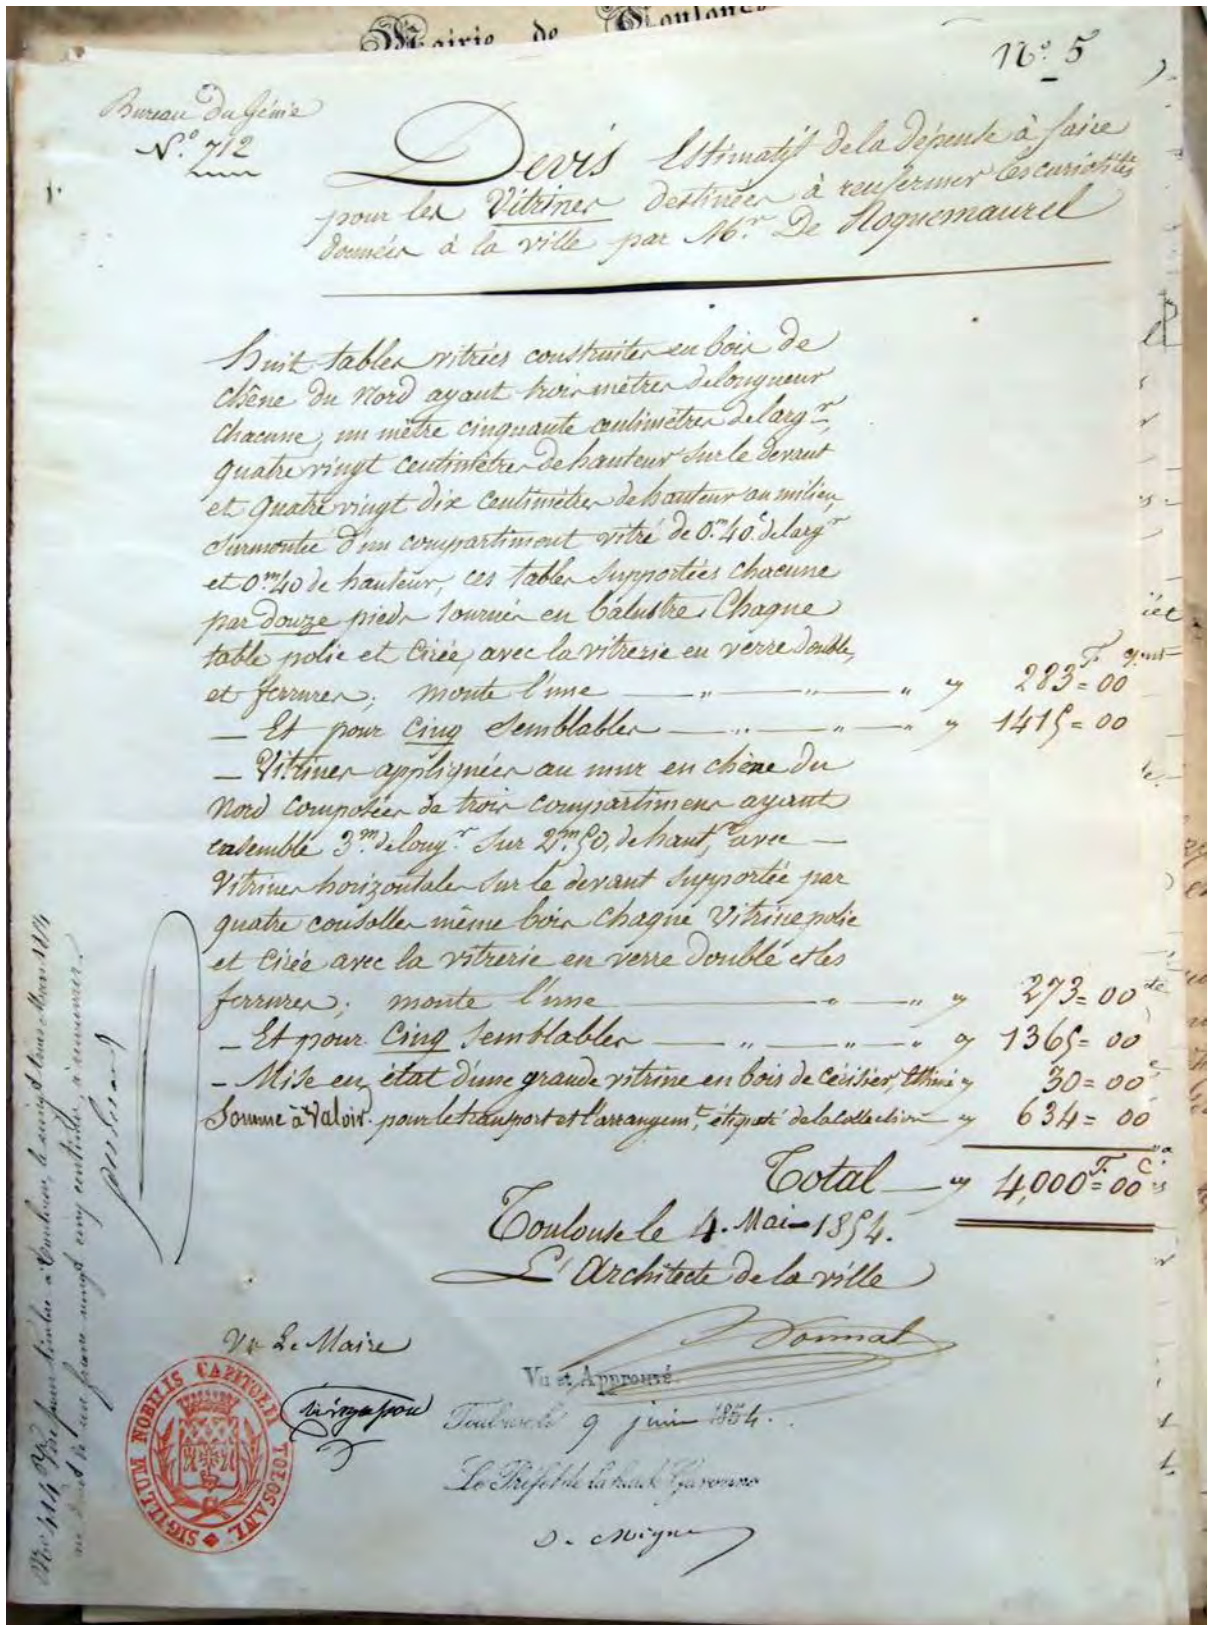 Mairie de Toulouse
N.º 5
Bureau Du Génie
N.º 712
Devis Estimatif de la dépense à faire
pour les Vitrines destinées à renfermer les curiosités
données à la ville par Mr. De Roquemaurel
Huit tables vitrées construites en bois de
chêne du Nord ayant trois mètres de longueur
chacune, un mètre cinquante centimètres de largr,
quatre vingt centimètres de hauteur sur le devant
et quatre vingt dix centimètres de hauteur au milieu,
surmontée d'un compartiment vitré de 0m.40c. de largr
et 0m40 de hauteur, ces tables supportées chacune
par douze pieds tournés en balustre. Chaque
table polie et cirée, avec la vitrerie en verre double,
et ferrures; monte l'une — " — " — " 283F=00
— Et pour cinq semblables — " — " — " 1415=00
— Vitrines appliquées au mur en chêne du
Nord composées de trois compartimens ayant
ensemble 3m. de longr. sur 2m.50, de hautr, avec —
Vitrines horizontales sur le devant supportée par
quatre consolles même bois chaque Vitrine polie
et cirée avec la vitrerie en verre double et les
ferrures; monte l'une — " — " 273=00
— Et pour cinq semblables — " — " — " 1365=00
— Mise en état d'une grande vitrine en bois de cérisier, Estimé 30=00
Somme à Valoir pour le transport et l'arrangemt, étiqté de la Collection 634=00
Total — 4,000F=00C
Toulouse le 4. Mai 1854.
L'Architecte de la ville
Vu Le Maire
Vu et Approuvé.
Toulouse le 9 juin 1854.
Le Préfet de la haute Garonne
SIGILLUM NOBILIS CAPITOLII TOLOSANI